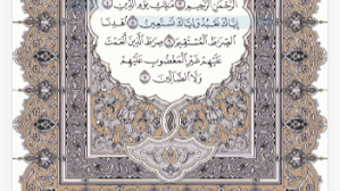 ٱلرَّحْمَٰنِ ٱلرَّحِيمِ ۝ مَٰلِكِ يَوْمِ ٱلدِّينِ ۝
إِيَّاكَ نَعْبُدُ وَإِيَّاكَ نَسْتَعِينُ ۝ ٱهْدِنَا
ٱلصِّرَٰطَ ٱلْمُسْتَقِيمَ ۝ صِرَٰطَ ٱلَّذِينَ أَنْعَمْتَ
عَلَيْهِمْ غَيْرِ ٱلْمَغْضُوبِ عَلَيْهِمْ
وَلَا ٱلضَّآلِّينَ ۝